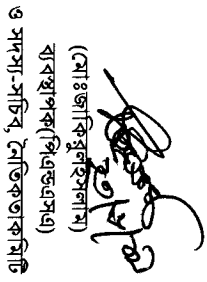 (মোঃ জাকিরুল ইসলাম)
ব্যবস্থাপক(পিএন্ডএসএ)
ও সদস্য-সচিব, নৈতিকতা কমিটি